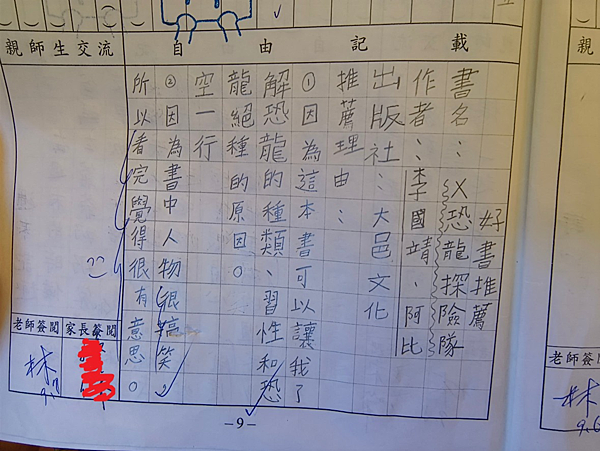 親師生交流
自由記載
好書推薦
書名：X恐龍探險隊
作者：李國靖、阿比
出版社：大邑文化
推薦理由：
①因為這本書可以讓我了
解恐龍的種類、習性和恐
龍絕種的原因。
空一行
②因為書中人物很搞笑，
所以看完覺得很有意思。
老師簽閱
家長簽閱
林
－9－
親
老師簽閱
林
9.6